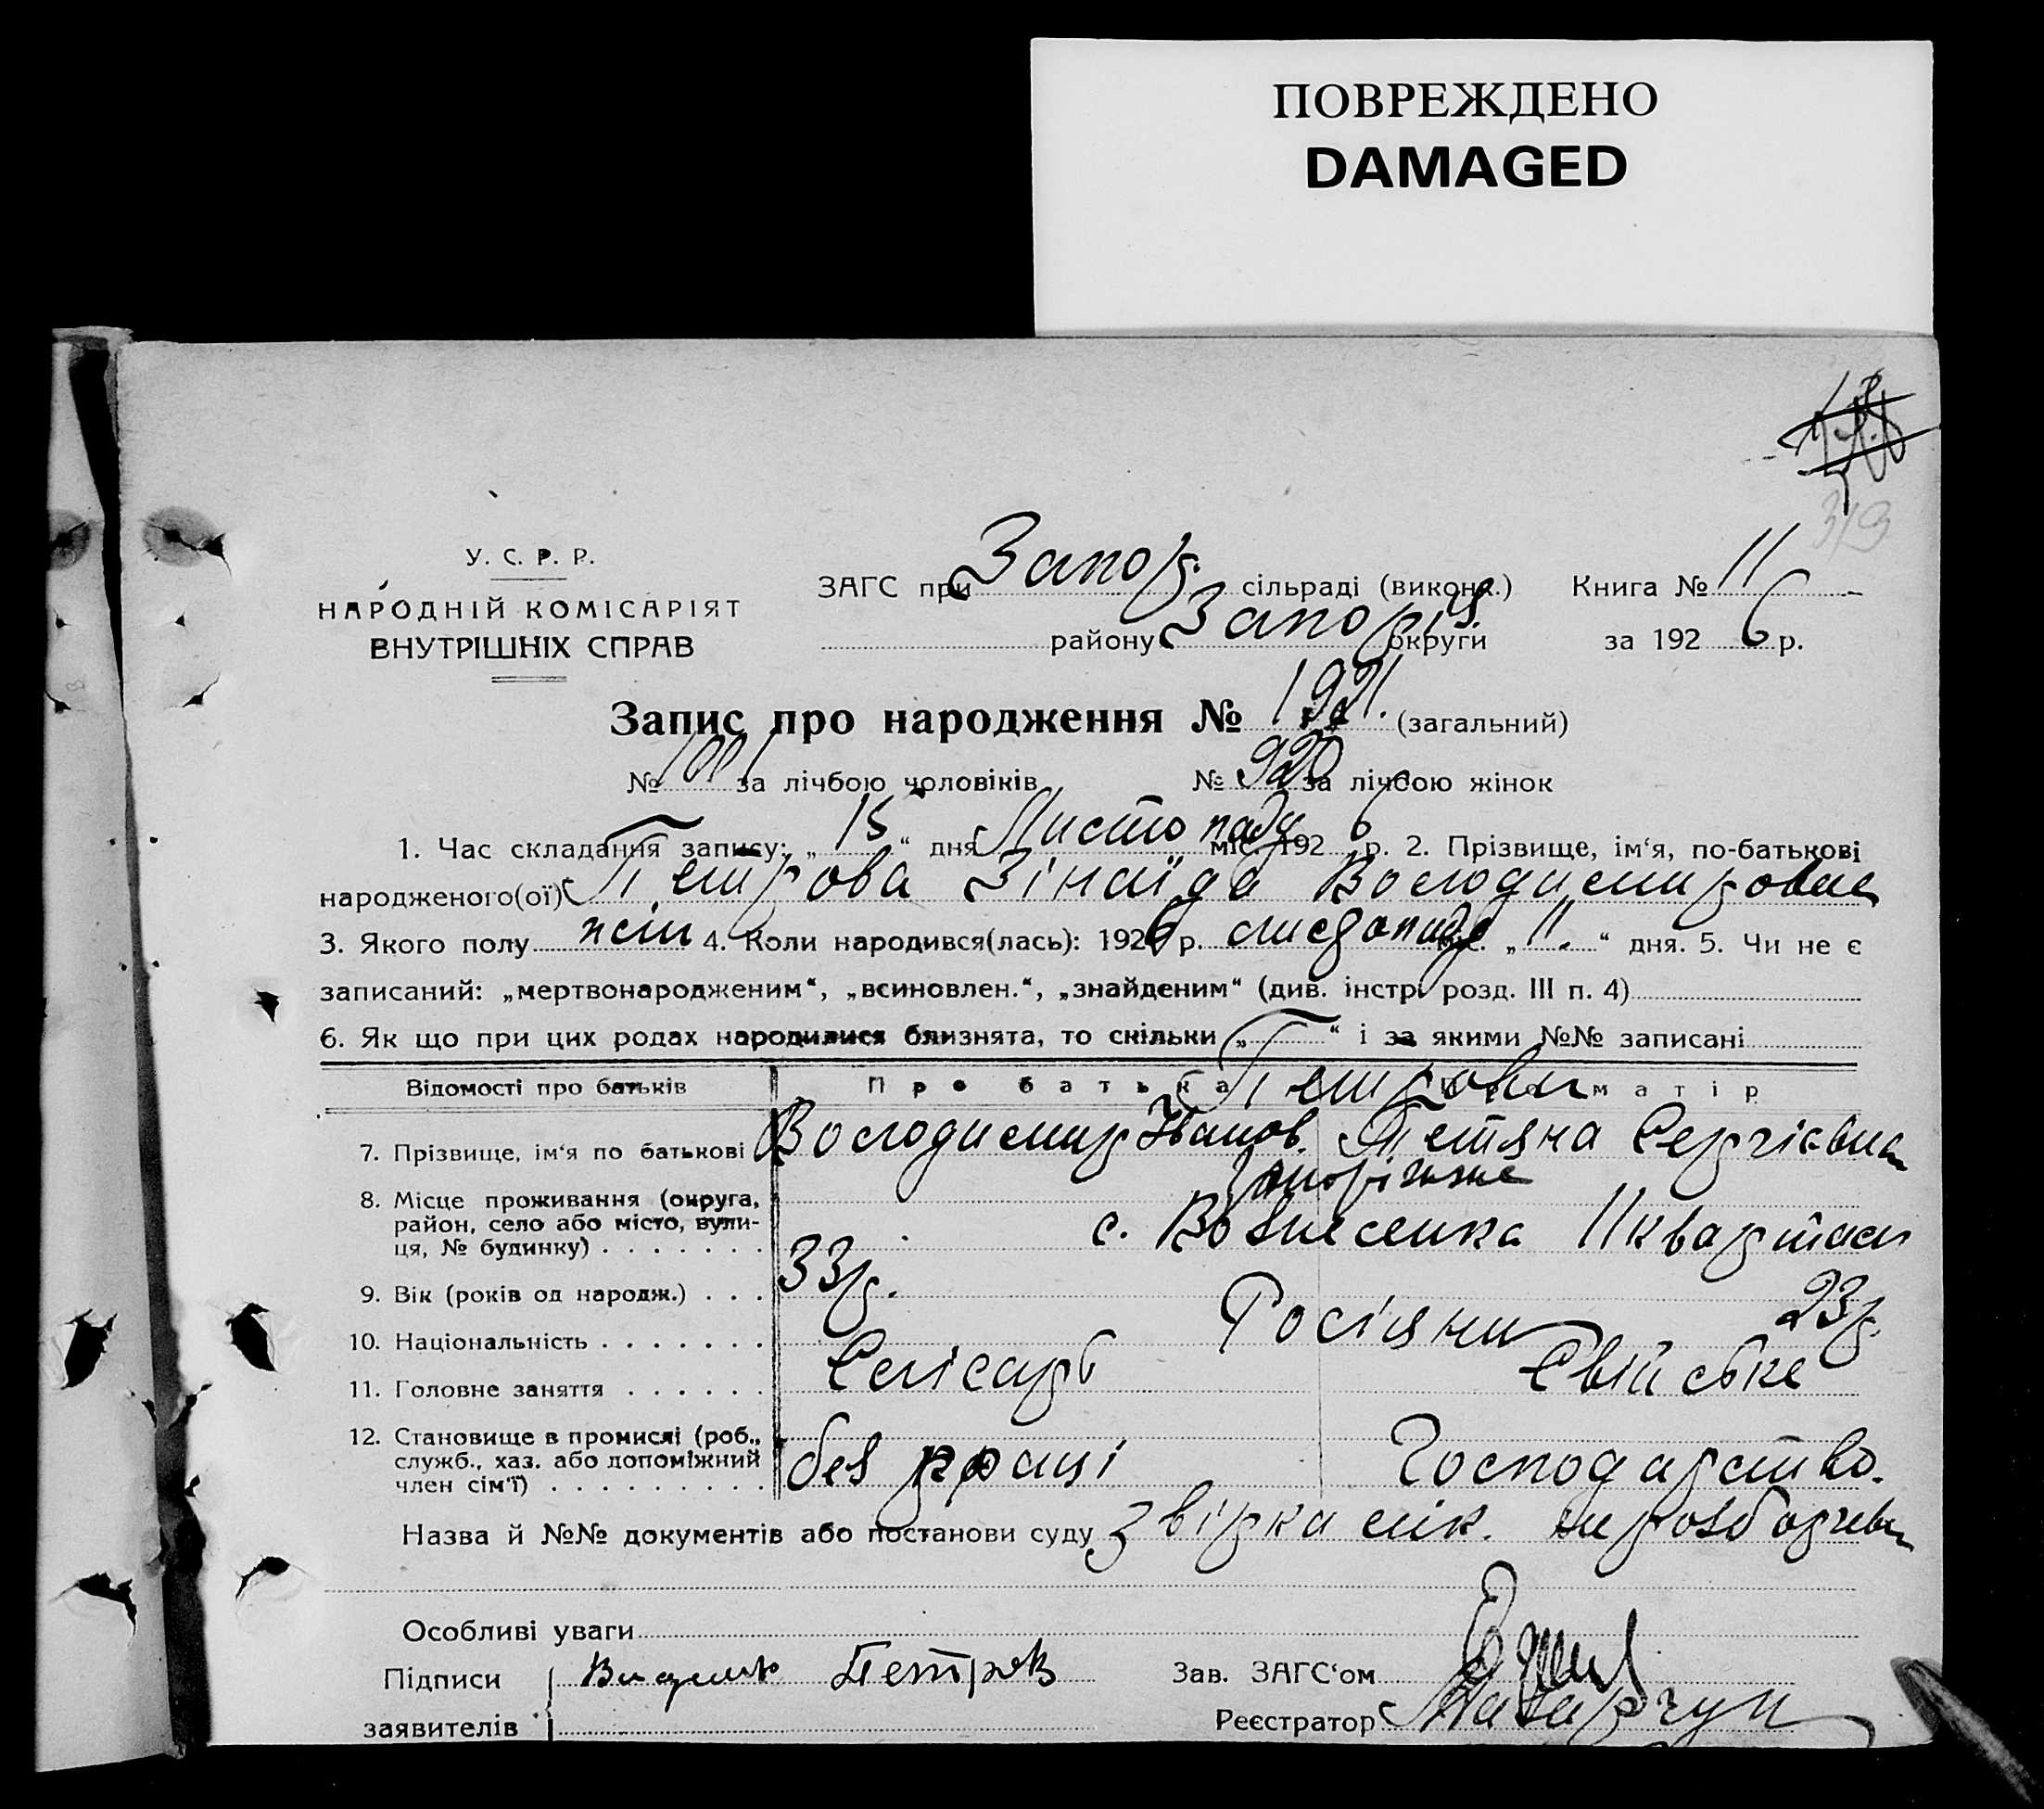 ПОВРЕЖДЕНО
DAMAGED
319
У. С. Р. Р.
НАРОДНІЙ КОМІСАРІЯТ
ВНУТРІШНІХ СПРАВ
ЗАГС при Запор. сільраді (викона.) Книга № 11
району Запоріз. округи за 1926 р.
Запис про народження № 1921. (загальний)
№ 1001 за лічбою чоловіків № 920 за лічбою жінок
1. Час складання запису: „15“ дня Листопаду міс. 1926 р. 2. Прізвище, ім‘я, по-батькові
народженого(ої) Петрова Зінаїда Володимировна
3. Якого полу жін 4. Коли народився(лась): 1926 р. листопаду міс. „11.“ дня. 5. Чи не є
записаний: „мертвонародженим“, „всиновлен.“, „знайденим“ (див. інстр. розд. III п. 4)
6. Як що при цих родах народилися близнята, то скільки „ “ і за якими №№ записані
Відомості про батьків Про батька Про матір
Петрови
7. Прізвище, ім‘я по батькові Володимир Іванов. Тетяна Сергієвна
8. Місце проживання (округа, район, село або місто, вулиця, № будинку) . . . . . . . Запоріжже
с. Вознесенка 11 квартал
9. Вік (років од народж.) . . . 33 р. 23 р.
10. Національність . . . . . . . Росіяни
11. Головне заняття . . . . . . Слісарь Свійське
12. Становище в промислі (роб., служб., хаз. або допоміжний член сім‘ї) . . . . . . . . . без праці Господарство.
Назва й №№ документів або постанови суду Звірка лік.
Особливі уваги
Підписи Петров Зав. ЗАГС‘ом
заявителів Реєстратор